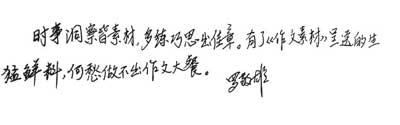 时事洞察皆素材，多练巧思出佳章。有了《作文素材》呈送的生
猛鲜料，何愁做不出作文大餐。 罗雄